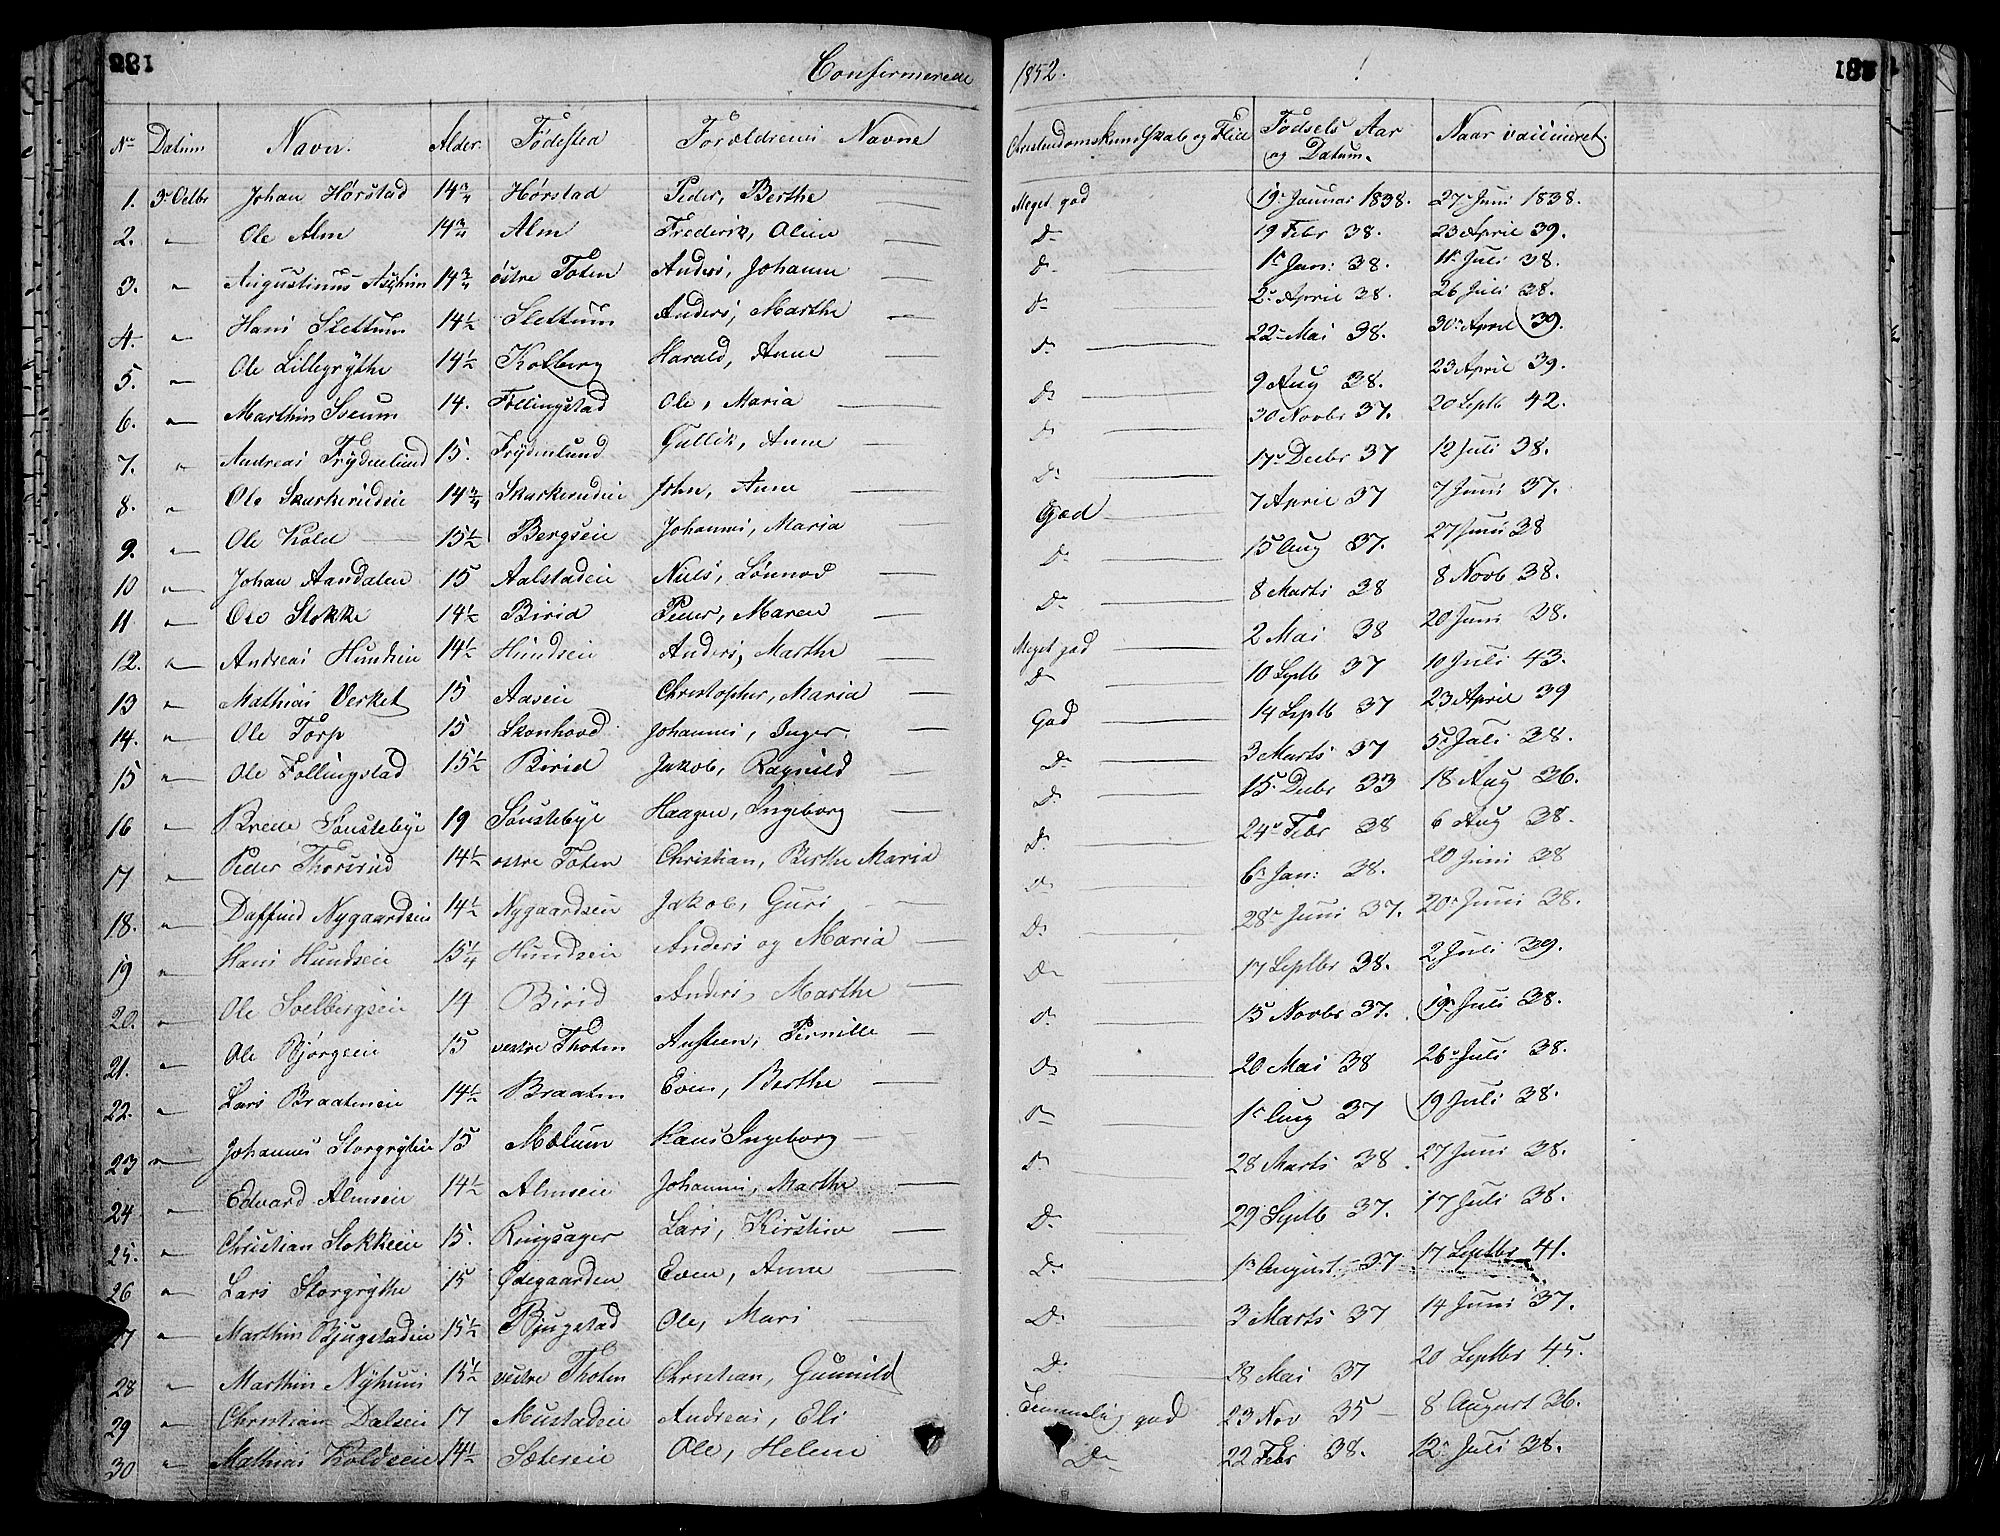 281 Confirmerede 1852. 183
No Datum Navn. Alder. Födested Forældrenes Navne Christendomskundskab og Flid Födsels Aar og Datum. Naar vaccineret.
1. 3 Octbr Johan Hörstad 14 3/4 Hörstad Peder, Berthe Meget god 19 Januar 1838. 27 Juni 1838.
2. " Ole Alm 14 3/4 Alm Frederik, Oline — Do — 19 Febr 38. 23 April 39.
3. " Augustinus 14 3/4 östre Toten Anders, Johanne — Do — 1 Jan: 38. 11 Juli 38.
4. " Hans Slettum 14 1/2 Slettum Anders, Marthe — Do — 2 April 38. 26 Juli 38.
5. " Ole Lillegrythe 14 1/2 Kolberg Harald, Anne — Do — 22 Mai 38. 30 April 39.
6. " Marthin 14. Föllingstad Ole, Maria — Do — 9 Aug 38. 23 April 39.
7. " Andreas Frydenlund 15. Frydenlund Gullik, Anne — Do — 30 Novbr 37. 20 Septb 42.
8. " Ole Skarkerudeie 14 3/4 Skarkerudeie John, Anne — Do — 17 Decbr 37 12 Juli 38.
9. " Ole Kold 15 1/2 Bergseie Johannes, Maria — God — 7 April 37 7 Juni 37.
10 " Johan Aandalen 15 Aalstadeie Niels, Lönnod — Do — 15 Aug 37. 27 Juni 38
11 " Ole Stokke 14 1/2 Birid Peder, Maren — Do — 8 Marts 38 8 Novb 38.
12. " Andreas Hundseie 14 1/2 Hundseie Anders, Marthe — Meget god — 2 Mai 38 20 Juni 38.
13 " Mathias Verket 15 Aaseie Christopher, Maria — Do — 10 Septb 37 10 Juli 43.
14. " Ole Torp 15 Skonhovd Johannes, Inger — God — 14 Septb 37 23 April 39
15 " Ole Föllingstad 15 1/2 Birid Jakob, Ragnild — Do — 3 Marts 37 5 Juli 38.
16 " Brede Sönstebye 19 Sönstebye Haagen, Ingeborg — Do — 15 Decbr 33 18 Aug 36.
17 " Peder Thorsrud 14 1/2 östre Toten Christian, Berthe Maria Do — 24 Febr 38 6 Aug 38.
18. " Daffind Nygaardseie 14 1/2 Nygaardseie Jakob, Guri — Do — 6 Jan: 38. 20 Juni 38
19 " Hans Hundseie 15 1/4 Hundseie Anders og Maria — Do — 28 Juni 37. 20 Juni 38.
20. " Ole Solbergseie 14 Birid Anders, Marthe — Do — 17 Septbr 38. 2 Juli 39.
21. " Ole Björgseie 15 vestre Thoten Austeen, Pernille — Do — 15 Novbr 37. 19 Juli 38.
22. " Lars Braateneie 14 1/2 Braaten Even, Berthe — Do — 20 Mai 38 26 Juli 38.
23 " Johannes Storgryteie 15 Mælum Hans Ingeborg — Do — 1 Aug 37 19 Juli 38.
24 " Edvard Almseie 14 1/2 Almseie Johannes, Marthe — Do — 28 Marts 38. 27 Juni 38.
25. " Christian Stokkeeie 15. Ringsager Lars, Kirstine — Do — 29 Septb 37. 17 Juli 38.
26 " Lars Storgrythe 15 Ødegaarden Even, Anne — Do — 1 August 37 17 Septbr 41.
27 " Marthin Bjugstadeie 15 1/2 Bjugstad Ole, Mari — Do — 3 Marts 37 14 Juni 37.
28 " Marthin Nyhuus 15 1/2 vestre Thoten Christian, Gunnild Do — 28 Mai 37 20 Septbr 45.
29 " Christian Dalseie 17 Mustadeie Andreas, Eli — Temmelig god 23 Nov 35 — 8 August 36.
30 " Mathias Koldseie 14 1/2 Sætereie Ole, Helene Do 22 Febr 38. 12 Juli 38.